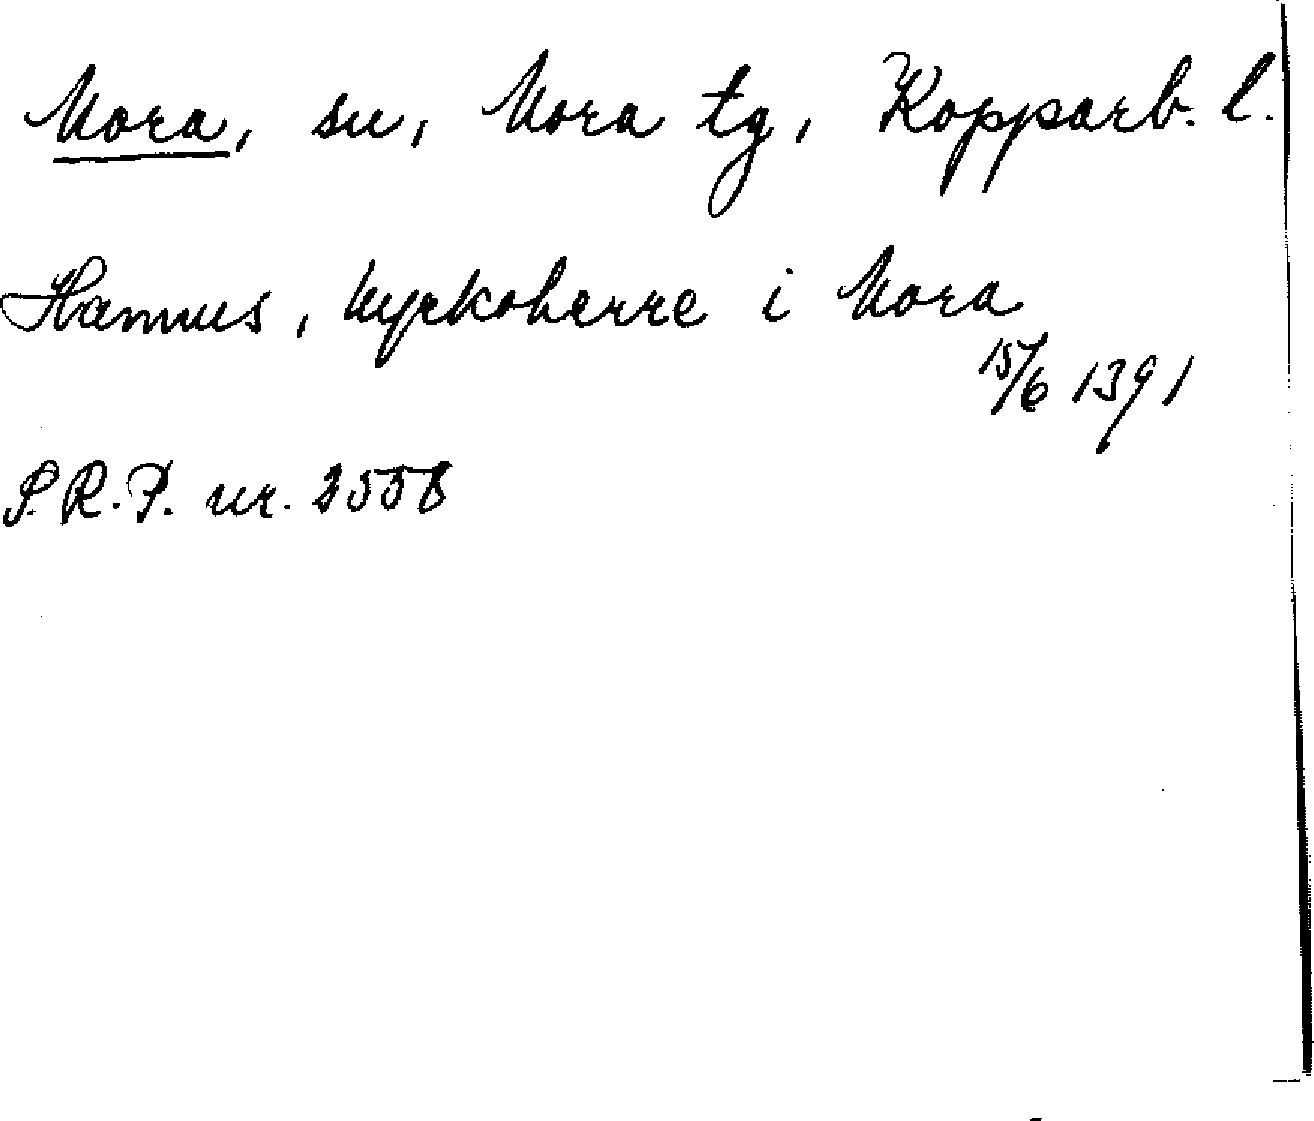 Mora, sn, Mora tg, Kopparb. l.
Hannus, kyrkoherre i Mora
15/6 1391
S.R.P. nr. 2558